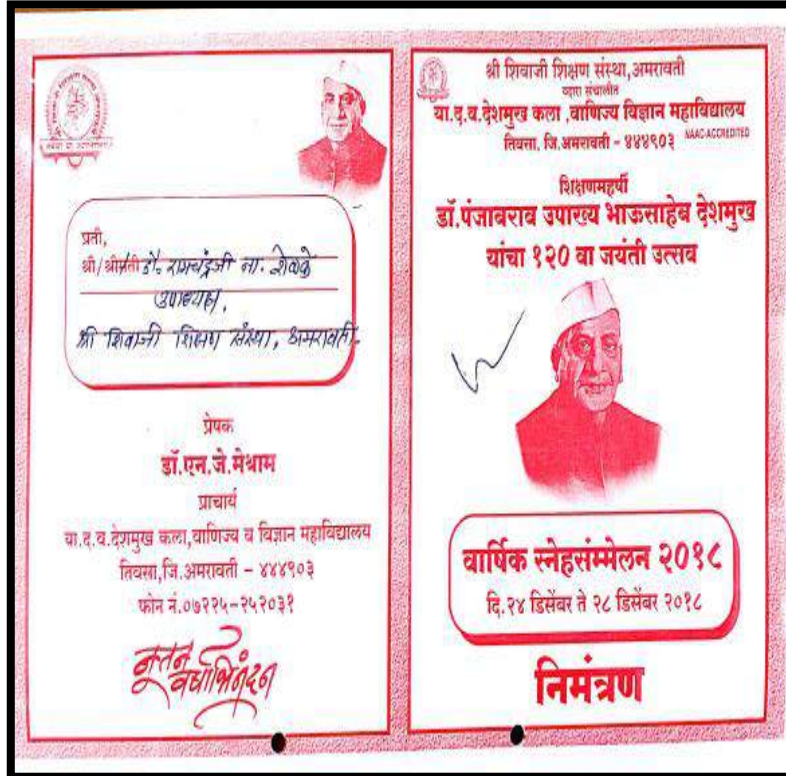 प्रती,
श्री/श्रीमती डॉ. रामचंद्रजी ना. शेळके
उपाध्यक्ष,
श्री शिवाजी शिक्षण संस्था, अमरावती.
प्रेषक
डॉ.एन.जे.मेश्राम
प्राचार्य
या.द.व.देशमुख कला,वाणिज्य व विज्ञान महाविद्यालय
तिवसा,जि.अमरावती - ४४४९०३
फोन नं.०७२२५-२५२०३१
नूतन
वर्षाभिनंदन
श्री शिवाजी शिक्षण संस्था,अमरावती
व्दारा संचालीत
या.द.व.देशमुख कला ,वाणिज्य विज्ञान महाविद्यालय
तिवसा, जि.अमरावती - ४४४९०३ NAAC-ACCREDITED
शिक्षणमहर्षी
डॉ.पंजाबराव उपाख्य भाऊसाहेब देशमुख
यांचा १२० वा जयंती उत्सव
वार्षिक स्नेहसंम्मेलन २०१८
दि.२४ डिसेंबर ते २८ डिसेंबर २०१८
निमंत्रण